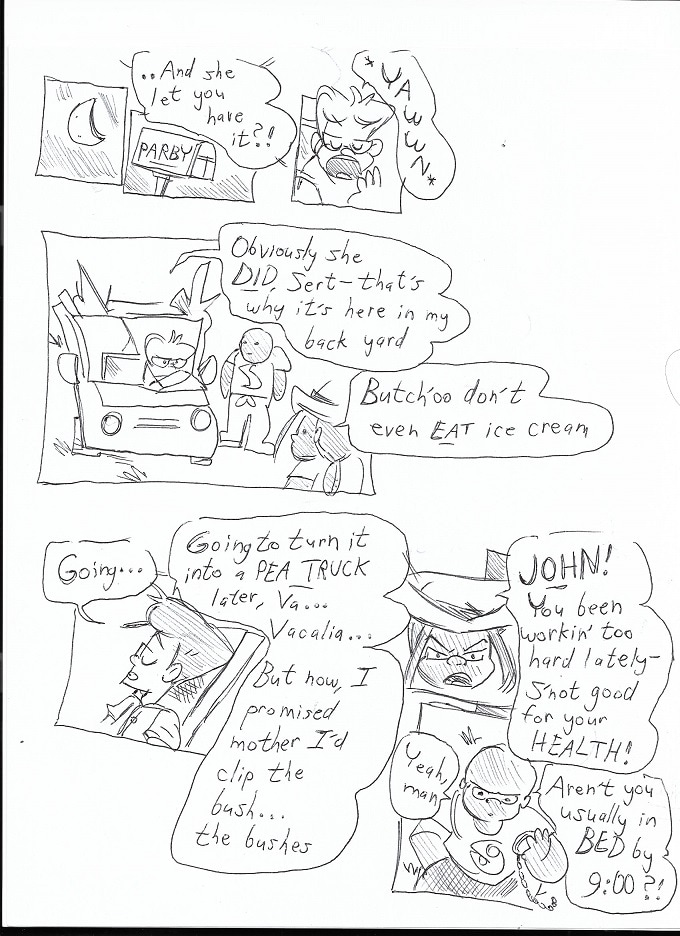 ..And she
let you
have
it?!
PARBY
*YAWWN*
Obviously she
DID, Sert-that's
why it's here in my
back yard
S
Butch'oo don't
even EAT ice cream
Going...
Going to turn it
into a PEA TRUCK
later, Va...
Vacalia...
But now, I
promised
mother I'd
clip the
bush...
the bushes
JOHN!
You been
workin' too
hard lately-
S'not good
for your
HEALTH!
Yeah,
man
Aren't you
usually in
BED by
9:00?!